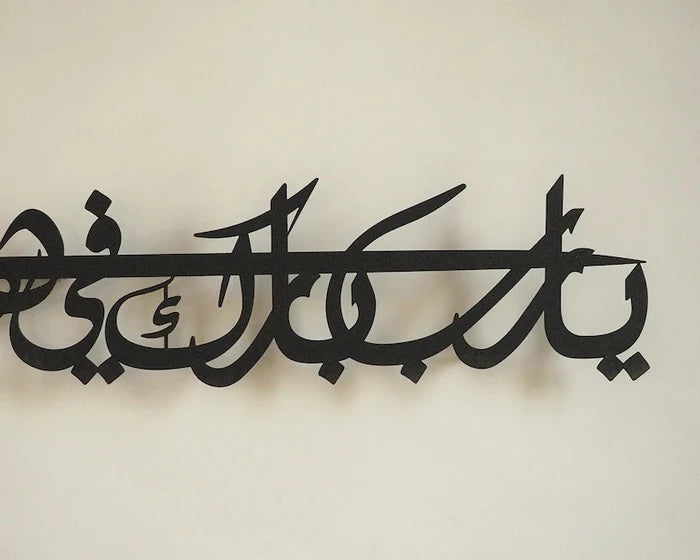 يا رب بارك في